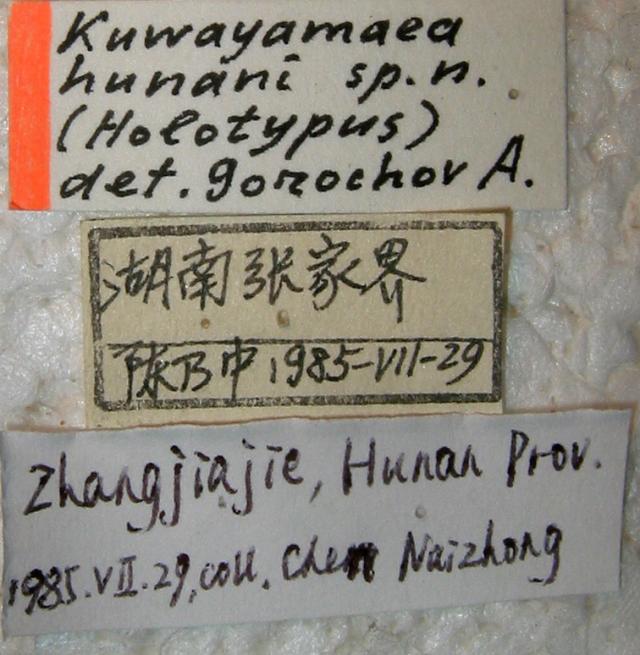 Kuwayamaea
hunani sp.n.
(Holotypus)
det. gorochov A.
湖南张家界
陈乃中 1985-VII-29
Zhangjiajie, Hunan Prov.
1985.VII.29, coll. Chen Naizhong